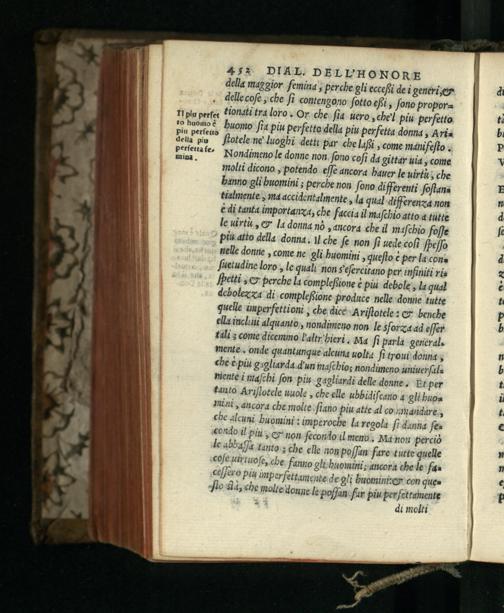 452 DIAL. DELL'HONORE
della maggior femina, perche gli eccessi de i generi, &
delle cose, che si contengono sotto essi, sono propor-
tionati tra loro. Or che sia uero, che'l piu perfetto
huomo sia piu perfetto della piu perfetta donna, Ari-
stotele ne' luoghi detti par che lassi, come manifesto.
Nondimeno le donne non sono cosi da gittar uia, come
molti dicono, potendo esse ancora hauer le uirtù, che
hanno gli huomini; perche non sono differenti sostan-
tialmente, ma accidentalmente, la qual differenza non
è di tanta importanza, che faccia il maschio atto a tutte
le uirtù, & la donna nò, ancora che il maschio fosse
piu atto della donna. Il che se non si uede così spesso
nelle donne, come ne gli huomini, questo è per la con-
suetudine loro, le quali non s'esercitano per infiniti ri-
spetti, & perche la complessione è piu debole, la qual
debolezza di complessione produce nelle donne tutte
quelle imperfettioni, che dice Aristotele: & benche
ella inclini alquanto, nondimeno non le sforza ad esser
tali; come dicemmo l'altr'hieri. Ma si parla general-
mente. onde quantunque alcuna uolta si troui donna,
che è piu gagliarda d'un maschio; nondimeno uniuersal-
mente i maschi son piu gagliardi delle donne. Et per
tanto Aristotele uuole, che elle ubbidiscano a gli huo-
mini, ancora che molte siano piu atte al commandare,
che alcuni huomini: imperoche la regola si danna se-
condo il piu, & non secondo il meno. Ma non perciò
le abbassa tanto; che elle non possan fare tutte quelle
cose uirtuose, che fanno gli huomini; ancora che le fa-
cessero piu imperfettamente de gli huomini: & con que-
sto stà, che molte donne le possan far piu perfettamente
di molti
Il piu perfet
to huomo è
piu perfetto
della piu
perfetta fe-
mina.